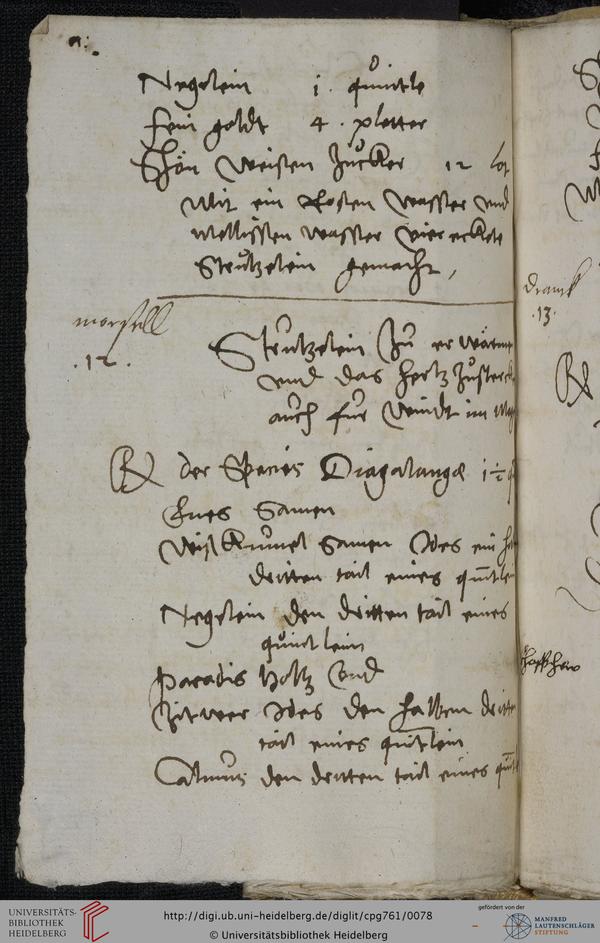 Negelein j. quintle
fein goldt 4. pletter
Schön Weissen Zucker 12 lot
Mit ein Rosen Wasser vnd
Mellissen wasser vier eckete
Strützelein gemacht,
morsell
.12.
Strützelein Zu er wärm
vnd das hertz Zusterck
auch für Windt im Mag
Rx der Species Diagalangae 1½ q
Enes Samen
Weis Kümel Samen Jdes ein ha
dritten tail eines quintlei
Negelein den dritten tail eines
quintlein
Paradis holtz Vnd
Zitwer Jdes den halben dritte
tail eines quintlein
Calmus den dritten tail eines quint
dranck
.13.
Rx
UNIVERSITÄTS-
BIBLIOTHEK
HEIDELBERG
http://digi.ub.uni-heidelberg.de/diglit/cpg761/0078
© Universitätsbibliothek Heidelberg
gefördert von der
MANFRED
LAUTENSCHLÄGER
STIFTUNG